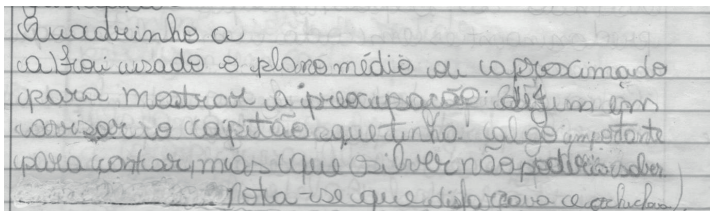 Quadrinho a
a) Foi usado o plano médio ou aproximado
para mostrar a preocupação de Jim em
avisar o capitão que tinha algo importante
para contar, mas que Silver não poderia saber
Nota-se que disfarçava